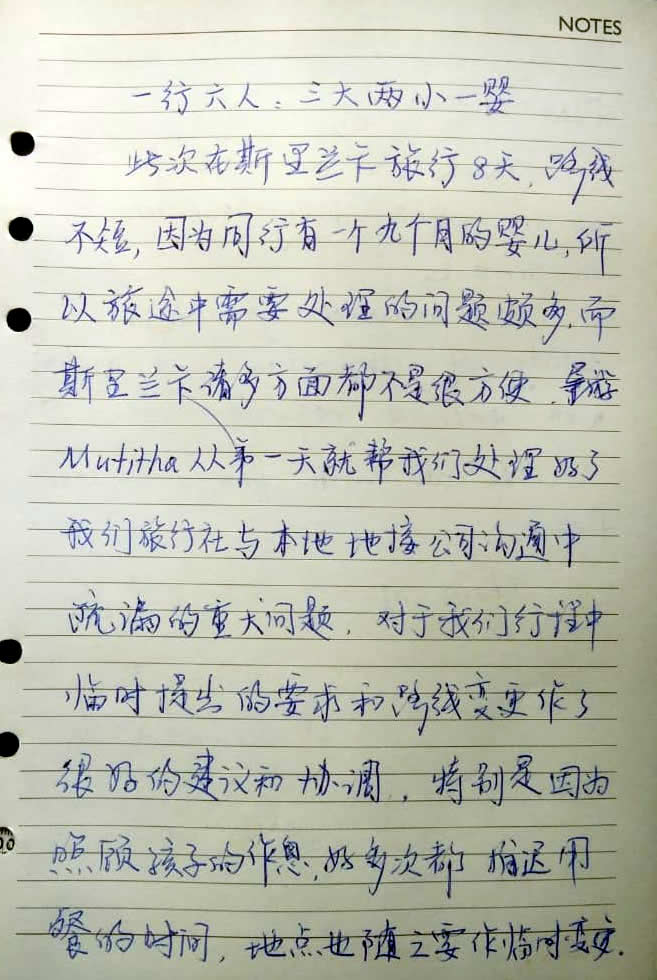 NOTES
一行六人：三大两小一婴
此次在斯里兰卡旅行8天，路线
不短，因为同行有一个九个月的婴儿，所
以旅途中需要处理的问题颇多，而
斯里兰卡诸多方面都不是很方便．导游
Mutitha从第一天就帮我们处理好了
我们旅行社与本地地接公司沟通中
疏漏的重大问题．对于我们行程中
临时提出的要求和路线变更作了
很好的建议和协调，特别是因为
照顾孩子的作息，好多次都推迟用
餐的时间，地点也随之要作临时变更．